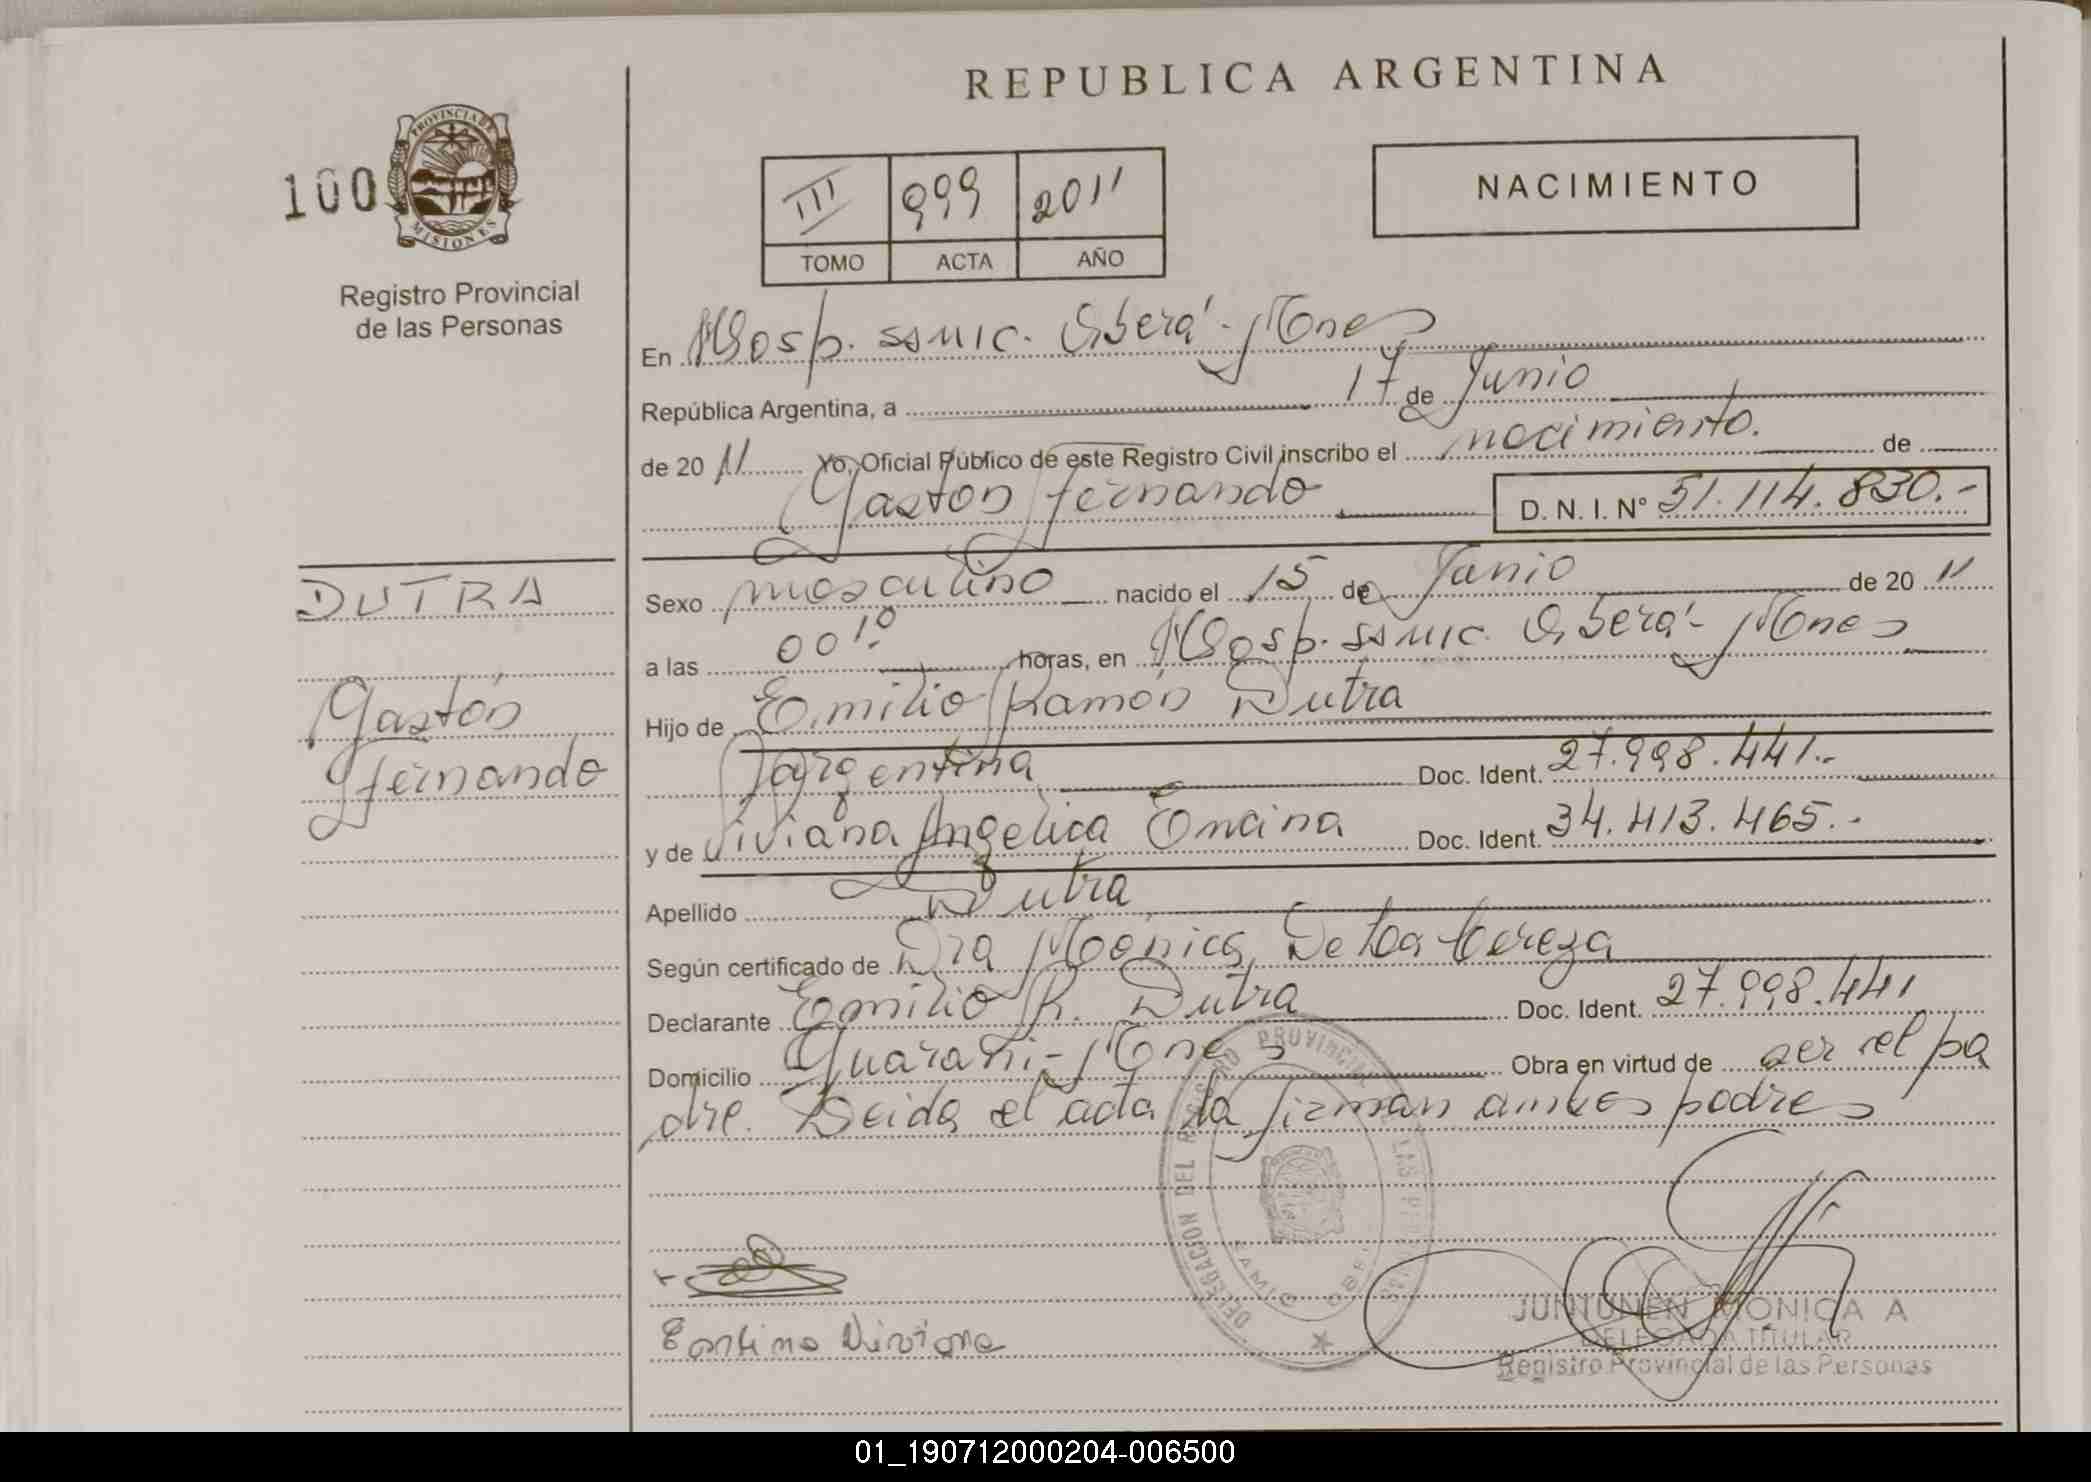 REPUBLICA ARGENTINA
100
PROVINCIA DE
MISIONES
Registro Provincial
de las Personas
III 999 2011
TOMO ACTA AÑO
NACIMIENTO
En Hosp. SAMIC. Oberá - Mnes
República Argentina, a 17 de Junio
de 20 11 Yo, Oficial Público de este Registro Civil inscribo el nacimiento. de
Gastón Fernando D. N. I. Nº 51.114.830.-
DUTRA
Gastón
Fernando
Sexo masculino nacido el 15 de Junio de 20 11
a las 00 10 horas, en Hosp. SAMIC. Oberá - Mnes
Hijo de Emilio Ramón Dutra
Argentina Doc. Ident. 27.998.441.-
y de Viviana Angélica Encina Doc. Ident. 34.413.465.-
Apellido Dutra
Según certificado de Dra Mónica De La Cereza
Declarante Emilio R. Dutra Doc. Ident. 27.998.441
Domicilio Guaraní - Mnes Obra en virtud de ser el pa
dre. Leida el acta la firman ambos padres
DELEGACION DEL REGISTRO PROVINCIAL DE LAS PERSONAS
Viviana
JUNTUNEN MONICA A
DELEGADA TITULAR
Registro Provincial de las Personas
01_190712000204-006500